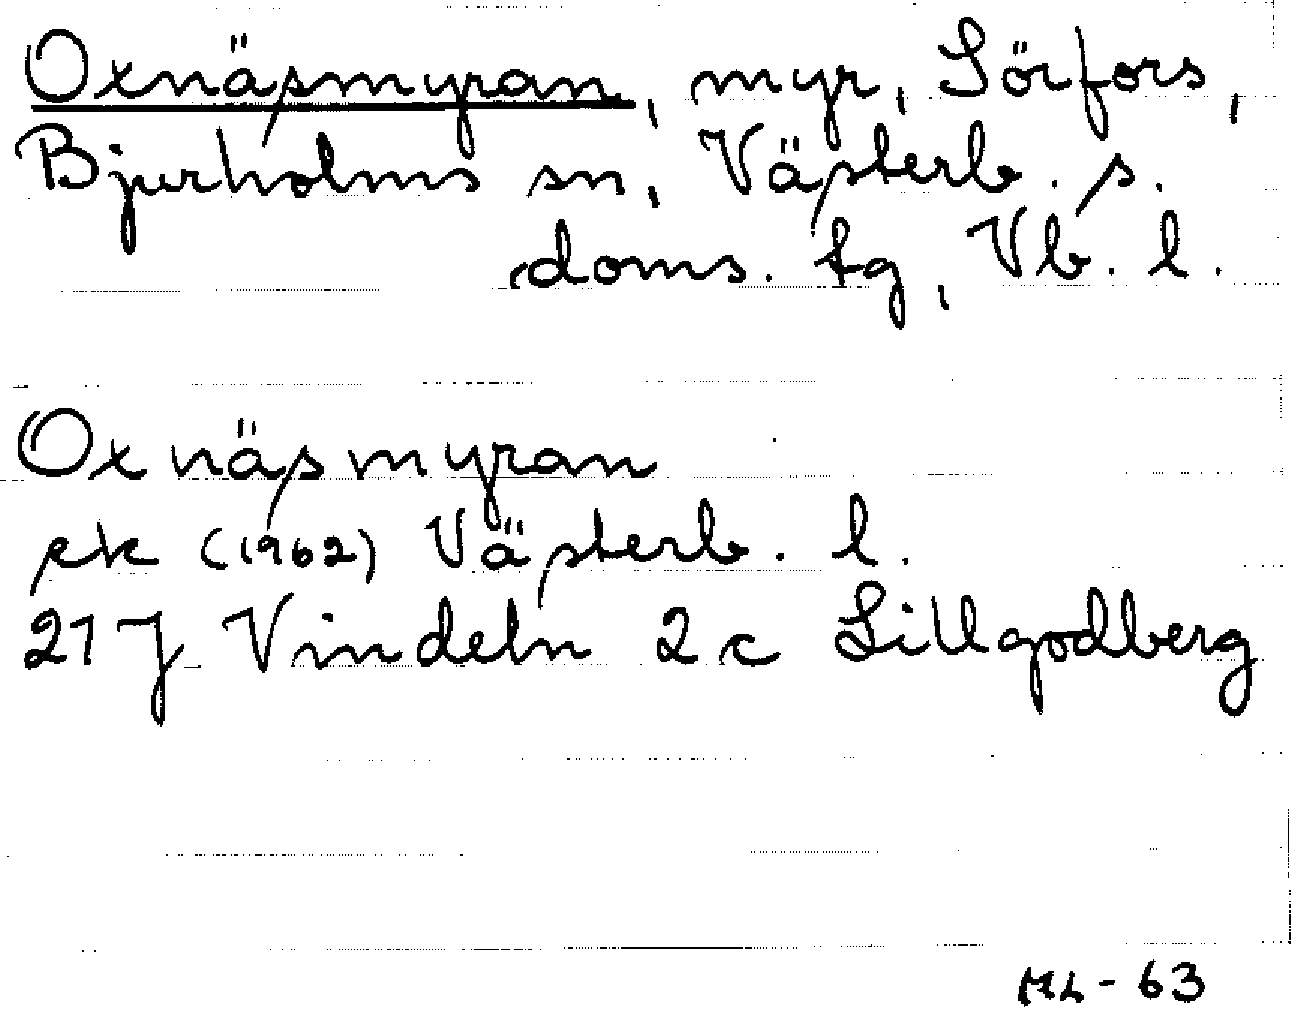 Oxnäsmyran, myr, Sörfors,
Bjurholms sn, Västerb. s.
doms. tg, Vb. l.
Oxnäsmyran
ek (1962) Västerb. l.
21 J Vindeln 2 c Lillgodberg
ML - 63